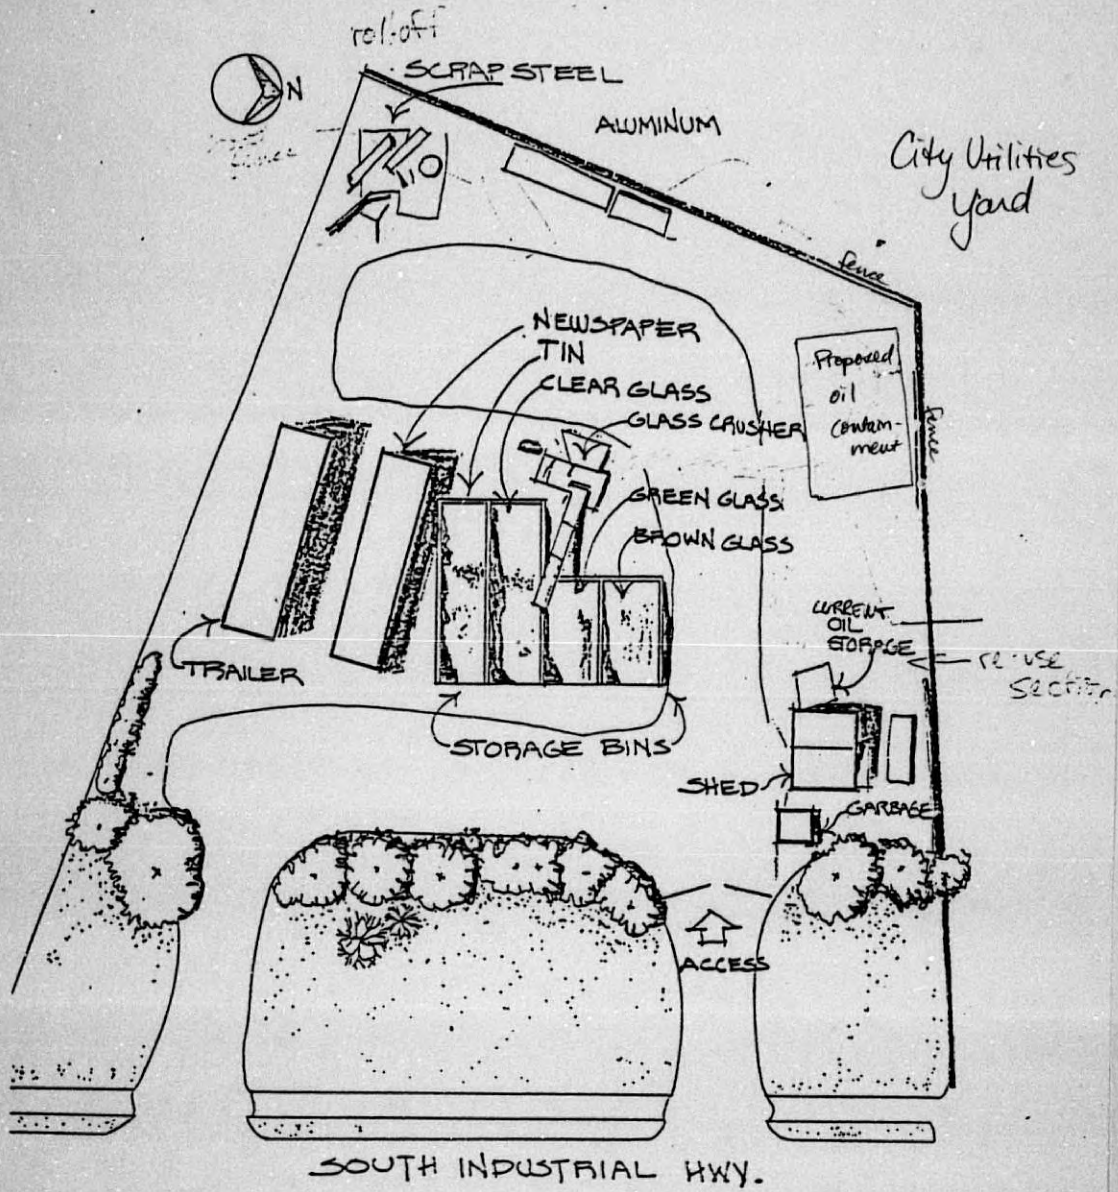 roll-off
SCRAP STEEL
N
fence
ALUMINUM
City Utilities
Yard
fence
NEWSPAPER
TIN
CLEAR GLASS
GLASS CRUSHER
Proposed
oil
contain-
ment
fence
GREEN GLASS
BROWN GLASS
CURRENT
OIL
STORAGE
re-use
section
TRAILER
STORAGE BINS
SHED
GARBAGE
ACCESS
SOUTH INDUSTRIAL HWY.